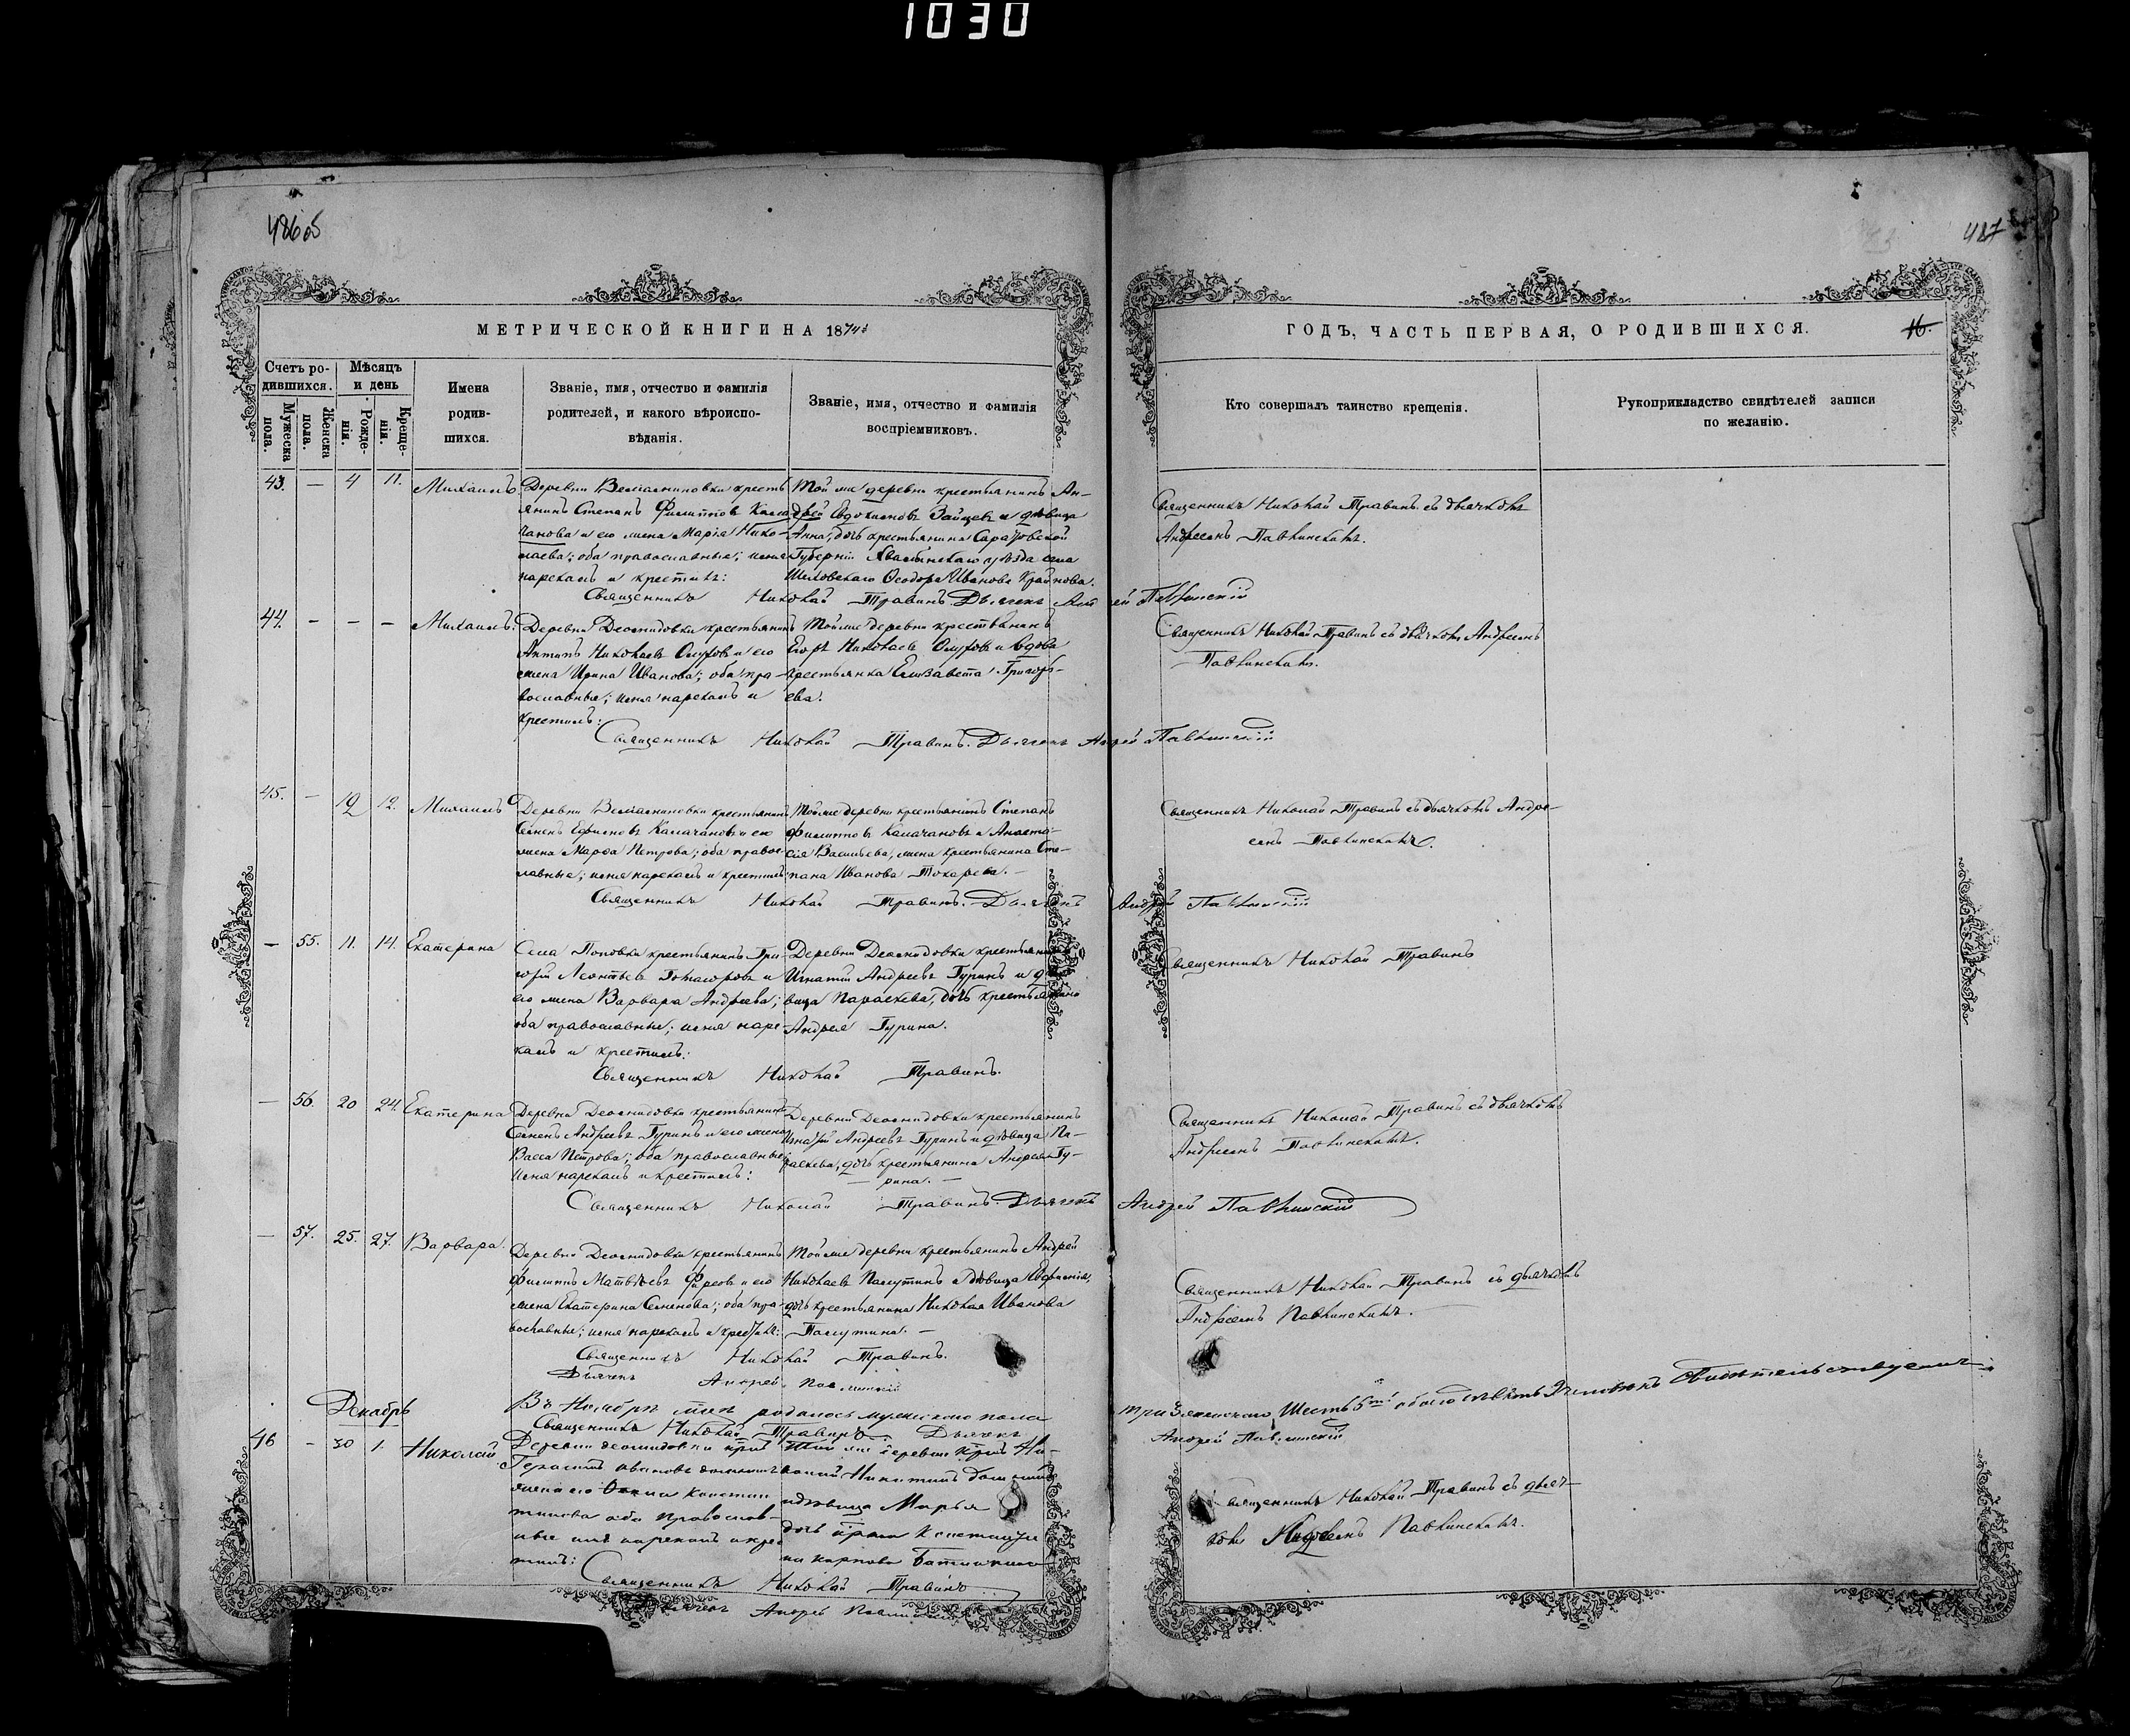 1030
486об
487
МЕТРИЧЕСКОЙ КНИГИ НА 1874й
ГОДЪ, ЧАСТЬ ПЕРВАЯ, О РОДИВШИХСЯ.
16.
Счетъ ро-
дившихся.
Мужеска
пола.
Женска
пола.
Мѣсяцъ
и день
Рожде-
нія.
Креще-
нія.
Имена
родив-
шихся.
Званіе, имя, отчество и фамилія
родителей, и какого вѣроиспо-
вѣданія.
Званіе, имя, отчество и фамилія
воспріемниковъ.
Кто совершалъ таинство крещенія.
Рукоприкладство свидѣтелей записи
по желанію.
43. — 4 11. Михаилъ
Деревни кресть
янинъ Степанъ Филипповъ Кала
чанова и его жена Марія Нико-
лаева; оба православные; имя
нарекалъ и крестилъ:
Той же деревни крестьянинъ Ан-
дрей Евдокимовъ Зайцевъ и дѣвица
Анна, дочь крестьянина Саратовской
Губерніи Хвалынскаго уѣзда села
Ѳеодора Иванова Крайнова.
Священникъ Николай Травинъ съ дьячкомъ
Андреемъ Павлинскимъ.
Священникъ Николай Травинъ. Дьячекъ Андрей Павлинскій
44. — — — Михаилъ.
Деревни Деомидовки крестьянинъ
Антипъ Николаевъ и его
жена Ирина Иванова; оба пра-
вославные; имя нарекалъ и
крестилъ:
Той же деревни крестьянинъ
Егоръ Николаевъ и вдова
крестьянка Елизавета Григорь-
ева.
Священникъ Николай Травинъ съ дьячкомъ Андреемъ
Павлинскимъ.
Священникъ Николай Травинъ. Дьячекъ Андрей Павлинскій
45. — 12 12. Михаилъ
Деревни крестьянинъ
Семенъ Ефимовъ Калачановъ и его
жена Марѳа Петрова; оба право-
славные; имя нарекалъ и крестилъ:
Той же деревни крестьянинъ Степанъ
Филипповъ Калачановъ и Анаста-
сія Васильева, жена крестьянина Сте-
пана Иванова Токарева. —
Священникъ Николай Травинъ съ дьячкомъ Андре-
емъ Павлинскимъ.
Священникъ Николай Травинъ. Дьячекъ Андрей Павлинскій
— 55. 11. 14. Екатерина
Села Поповки крестьянинъ Гри-
горій Леонтьевъ и
его жена Варвара Андреева;
оба православные; имя наре-
калъ и крестилъ:
Деревни Деомидовки крестьянинъ
Игнатій Андреевъ Гуринъ и дѣ-
вица Параскева, дочь крестьянина
Андрея Гурина.
Священникъ Николай Травинъ
Священникъ Николай Травинъ.
— 56. 20 24. Екатерина
Деревни Деомидовки крестьянинъ
Семенъ Андреевъ Гуринъ и его жена
Васса Петрова; оба православные;
имя нарекалъ и крестилъ:
Деревни Деомидовки крестьянинъ
Игнатій Андреевъ Гуринъ и дѣвица Па-
раскева, дочь крестьянина Андрея Гу-
— рина. —
Священникъ Николай Травинъ съ дьячкомъ
Андреемъ Павлинскимъ.
Священникъ Николай Травинъ. Дьячекъ Андрей Павлинскій
— 57. 25. 27. Варвара.
Деревни Деомидовки крестьянинъ
Филиппъ Матвѣевъ и его
жена Екатерина Семенова; оба пра-
вославные; имя нарекалъ и крестилъ:
Той же деревни крестьянинъ Андрей
Николаевъ Пашутинъ и дѣвица Евфимія,
дочь крестьянина Николая Иванова
Пашутина. —
Священникъ Николай Травинъ съ дьячкомъ
Андреемъ Павлинскимъ. —
Священникъ Николай Травинъ.
Дьячекъ Андрей Павлинскій
Въ Ноябрѣ родилось мужескаго пола три Женскаго Шесть
Священникъ Николай Травинъ. Дьячекъ Андрей Павлинскій
Декабрь
46 — 30 1. Николай
Деревни Деомидовки
Герасимъ Ивановъ
жена его Констан
тинова оба православ-
ные имя нарекалъ и крес
тилъ:
Той же деревни Ни-
Никитинъ
и дѣвица Марья
дочь Константи
на Карпова
Священникъ Николай Травинъ съ дьяч-
комъ Андреемъ Павлинскимъ.
Священникъ Николай Травинъ
Дьячекъ Андрей